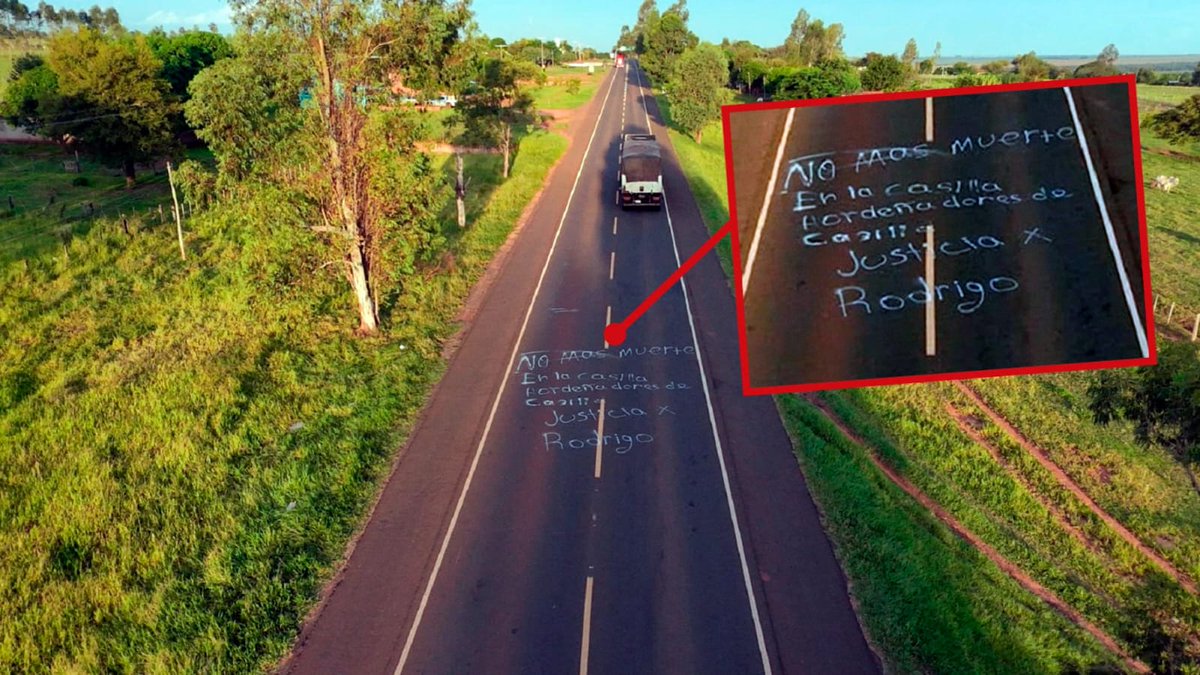 NO MAS MUERTE
En la casilla
Hordeñadores de
Casilla
Justicia x
Rodrigo
NO MAS MUERTE
En la casilla
Hordeñadores de
Justicia x
Rodrigo